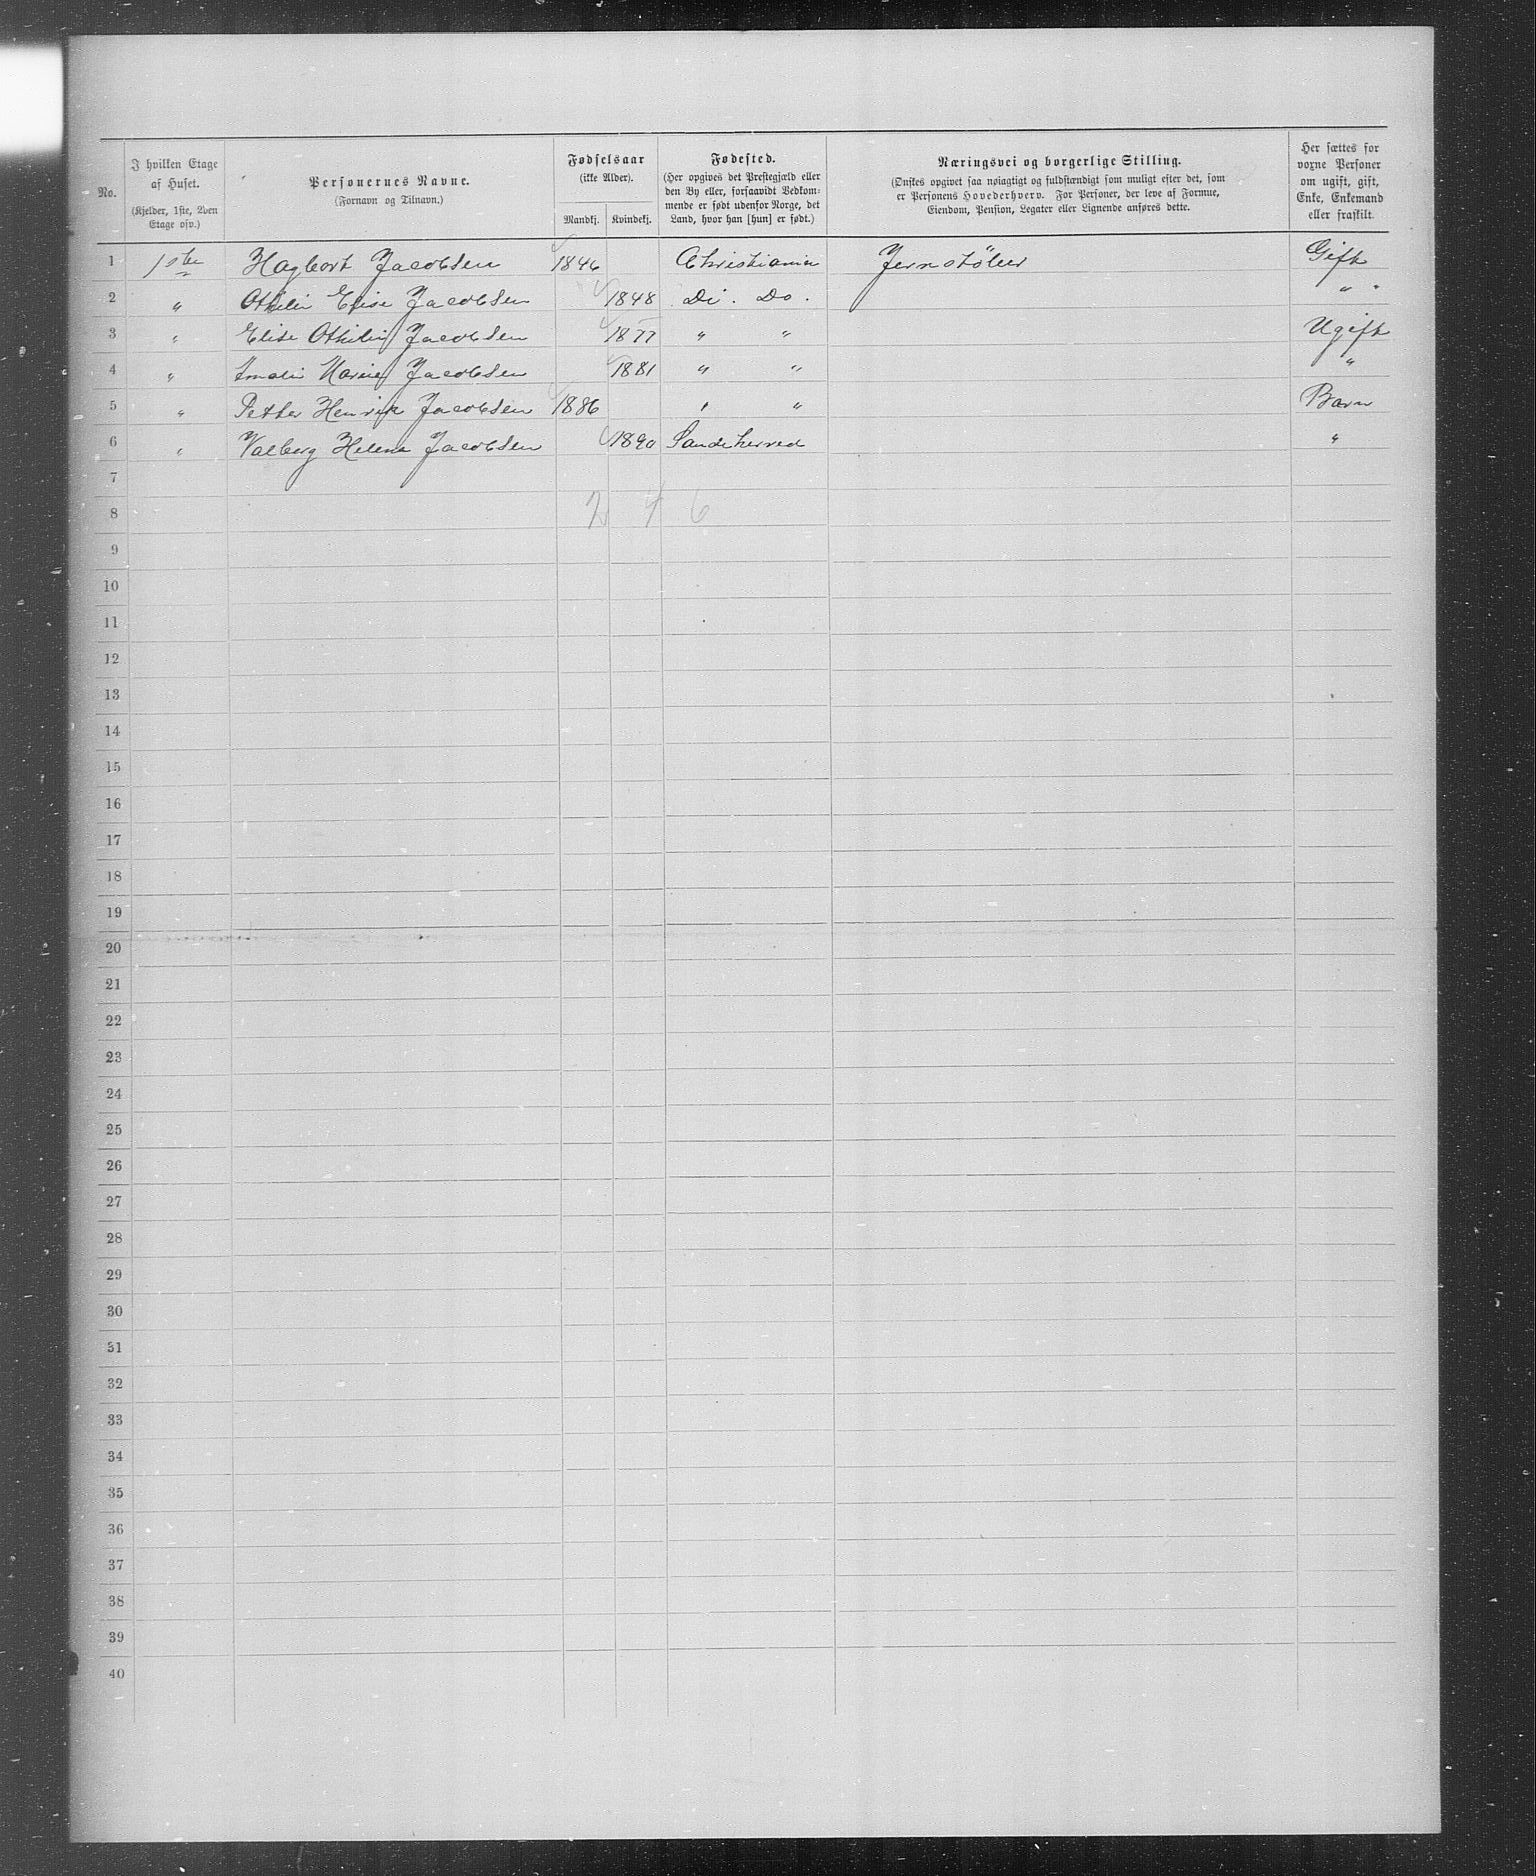 No. | I hvilken Etage af Huset. (Kjelder, 1ste, 2den Etage osv.) | Personernes Navne. (Fornavn og Tilnavn.) | Fødselsaar (ikke Alder). Mandkj. | Kvindekj. | Fødested. (Her opgives det Prestegjæld eller den By eller, forsaavidt Vedkommende er født udenfor Norge, det Land, hvor han [hun] er født.) | Næringsvei og borgerlige Stilling. (Ønskes opgivet saa nøiagtigt og fuldstændigt som muligt efter det, som er Personens Hovederhverv. For Personer, der leve af Formue, Eiendom, Pension, Legater eller Lignende anføres dette.) | Her sættes for voxne Personer om ugift, gift, Enke, Enkemand eller fraskilt.
1 1ste Hagbart Jacobsen 1846 Christiania Jernstöber Gift
2 " Othilie Elise Jacobsen 1848 Di. Do. " "
3 " Elise Othilie Jacobsen 1877 " " Ugift
4 " Amalie Marie Jacobsen 1881 " " "
5 " Petter Henrik Jacobsen 1886 " " Barn
6 " Valborg Helene Jacobsen 1890 Sandeherred "
7
8 2 4 6
9
10
11
12
13
14
15
16
17
18
19
20
21
22
23
24
25
26
27
28
29
30
31
32
33
34
35
36
37
38
39
40